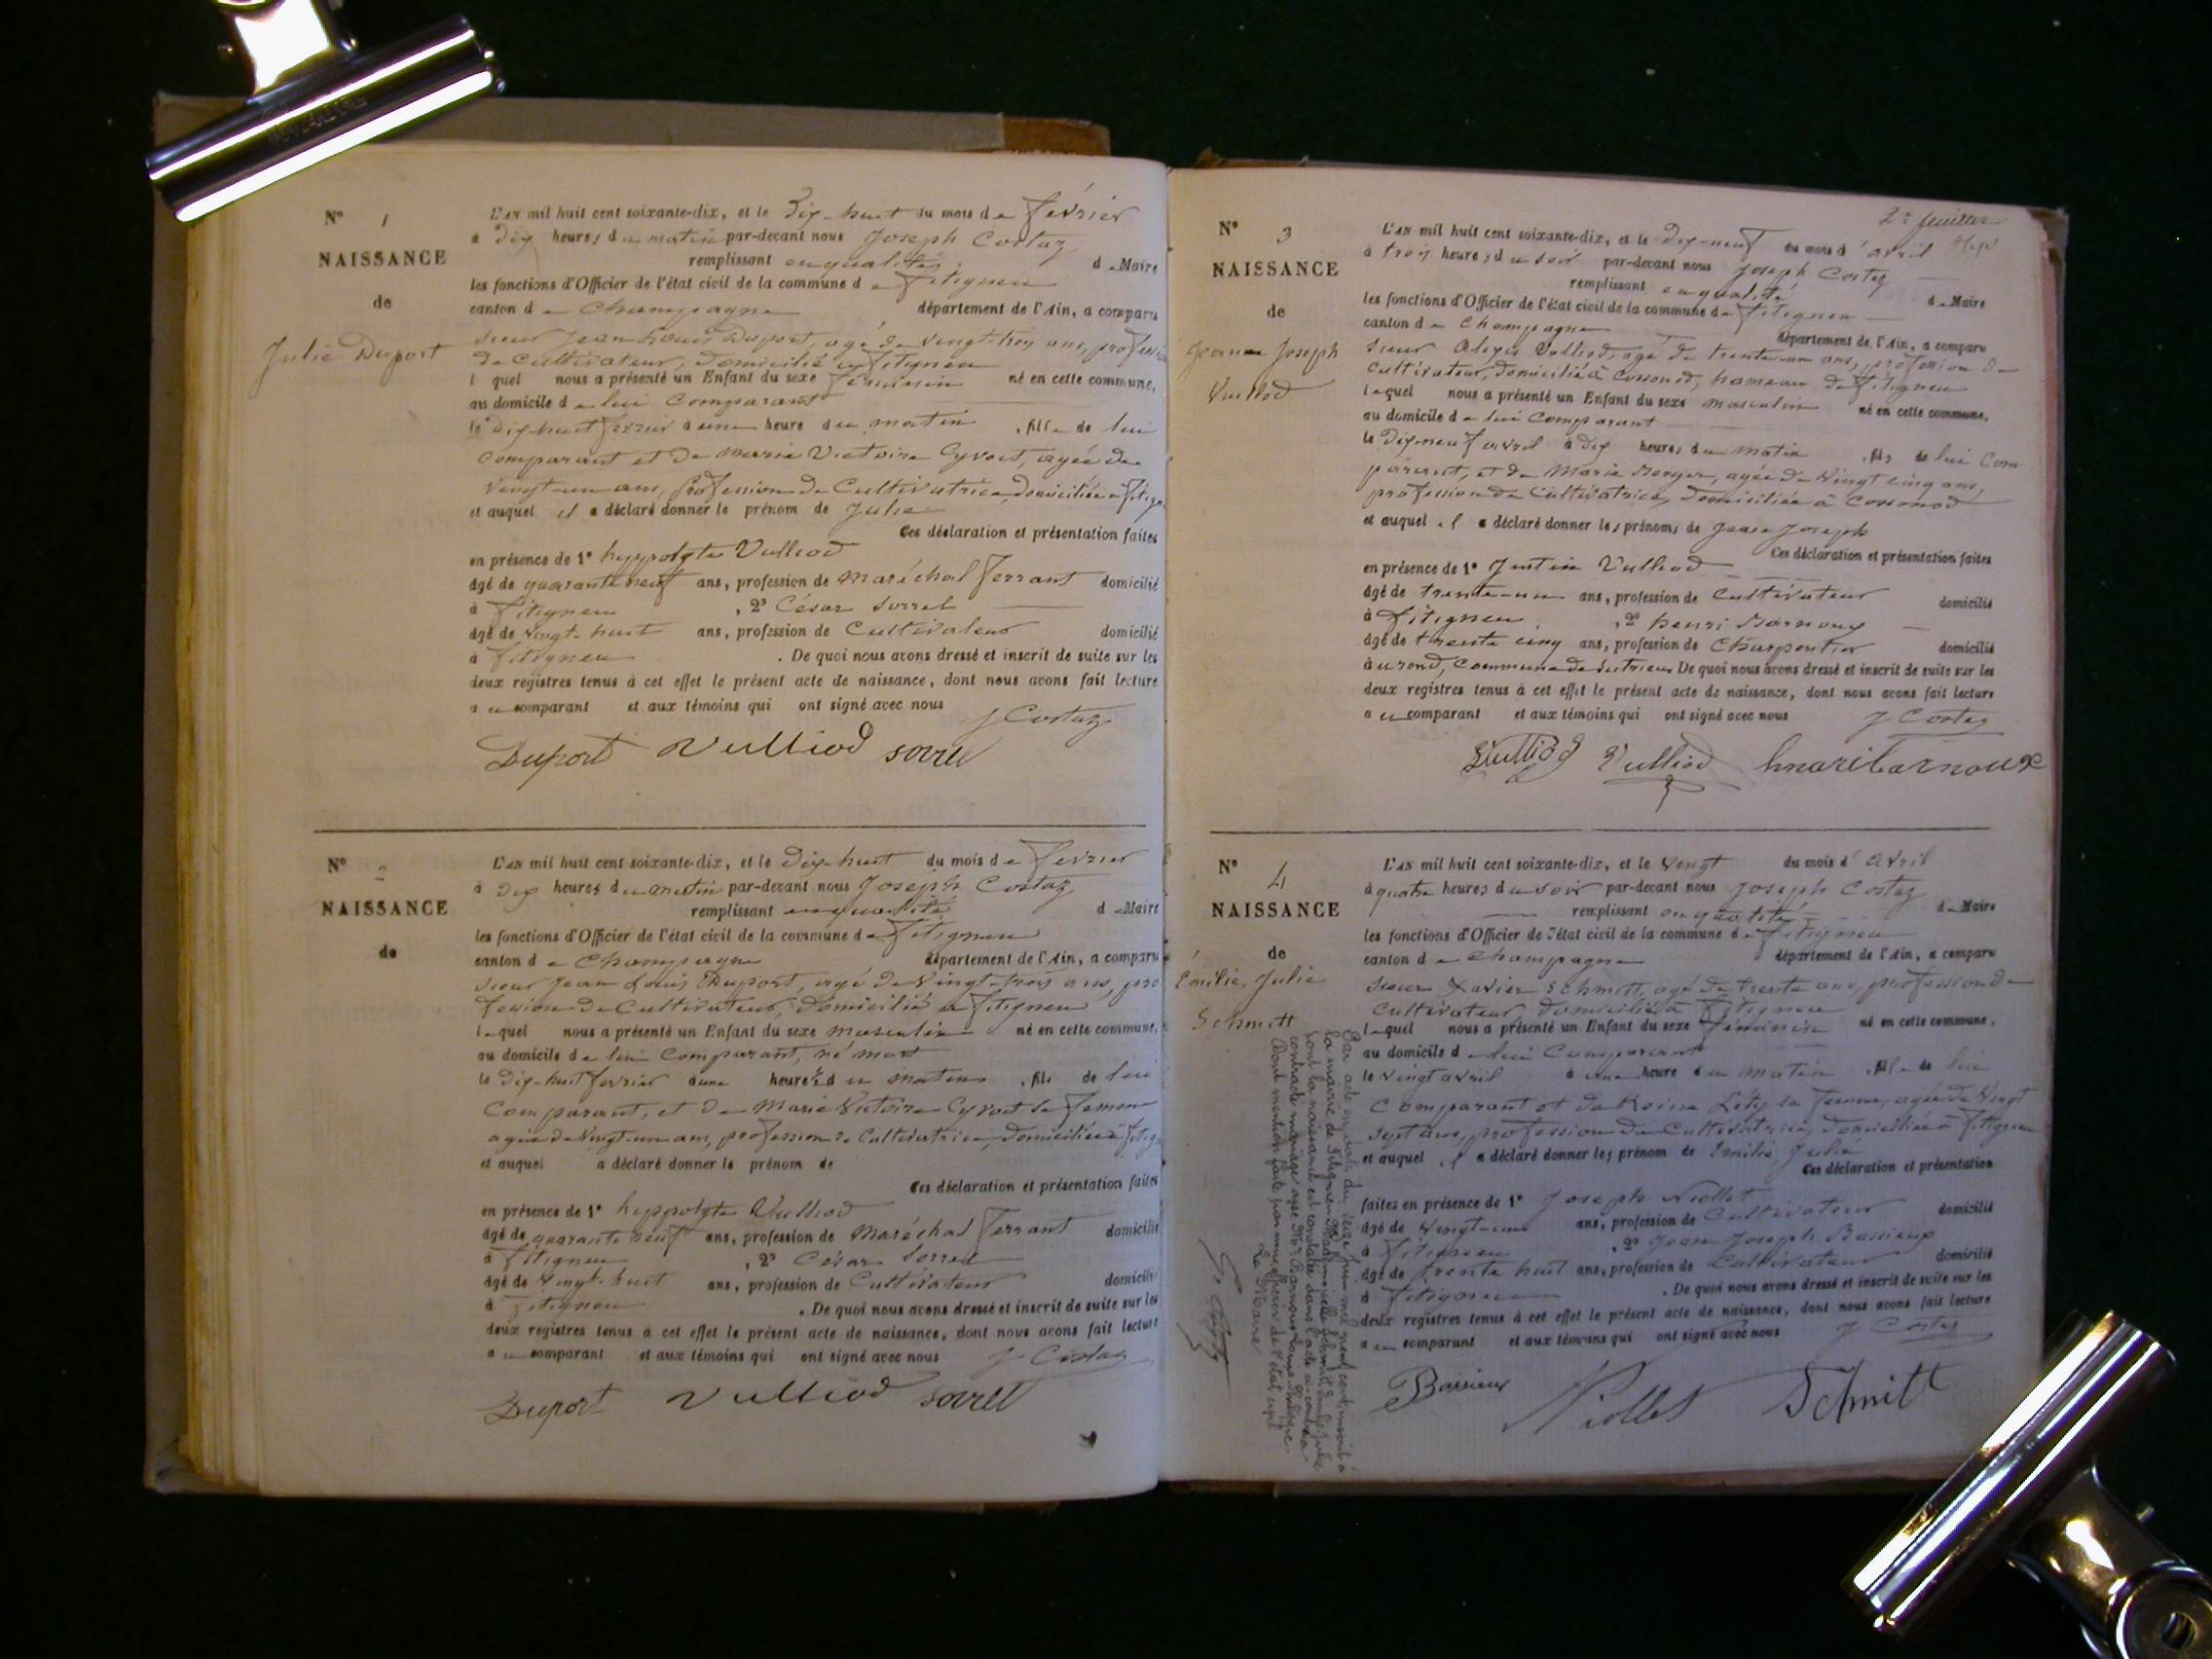 N° 1
NAISSANCE
de
Julie Duport
L'AN mil huit cent soixante-dix, et le Dix-huit du mois de février
à Dix heures du matin par-devant nous Joseph Costaz
remplissant en qualité de Maire
les fonctions d'Officier de l'état civil de la commune de fitignieu
canton de Champagne département de l'Ain, a comparu
sieur Jean Louis Duport, agé de vingt-trois ans, profession
de Cultivateur, domicilié à fitignieu
lequel nous a présenté un Enfant du sexe féminin né en cette commune,
au domicile de lui Comparant
le dix-huit février à une heure du matin , fille de lui
comparant et de marie Victoire Cyvoct, agée de
vingt-un ans, profession de Cultivatrice domiciliée à
et auquel il a déclaré donner le prénom de Julie
Ces déclaration et présentation faites
en présence de 1° hyppolyte Vulliod
âgé de quarante neuf ans, profession de maréchal ferrant domicilié
à fitignieu , 2° César Sorrel
âgé de vingt-huit ans, profession de Cultivateur domicilié
à fitignieu . De quoi nous avons dressé et inscrit de suite sur les
deux registres tenus à cet effet le présent acte de naissance, dont nous avons fait lecture
au comparant et aux témoins qui ont signé avec nous J Costaz
Duport Vulliod sorrel
N° 2
NAISSANCE
de
L'AN mil huit cent soixante-dix, et le Dix-huit du mois de février
à Dix heures du matin par-devant nous Joseph Costaz
remplissant en qualité de Maire
les fonctions d'Officier de l'état civil de la commune de fitignieu
canton de Champagne département de l'Ain, a comparu
sieur Jean Louis Duport, agé de vingt-trois ans, pro
fession de Cultivateur, domicilié à fitignieu
lequel nous a présenté un Enfant du sexe masculin né en cette commune,
au domicile de lui Comparant, né mort
le dix-huit février à une heure du matin , fils de lui
Comparant, et de Marie Victoire Cyvoct sa femme
agée de vingt-un ans, profession de Cultivatrice, domiciliée à
et auquel a déclaré donner le prénom de
Ces déclaration et présentation faites
en présence de 1° hyppolyte Vulliod
âgé de quarante neuf ans, profession de Maréchal ferrant domicilié
à fitignieu , 2° César Sorrel
âgé de vingt-huit ans, profession de Cultivateur domicilié
à fitignieu . De quoi nous avons dressé et inscrit de suite sur les
deux registres tenus à cet effet le présent acte de naissance, dont nous avons fait lecture
au comparant et aux témoins qui ont signé avec nous J Costaz
Duport Vulliod sorrel
2e feuillet
N° 3
NAISSANCE
de
Jean Joseph
Vulliod
L'AN mil huit cent soixante-dix, et le dix-neuf du mois d'avril
à trois heures du soir par-devant nous Joseph Costaz
remplissant en qualité de Maire
les fonctions d'Officier de l'état civil de la commune de fitignieu
canton de Champagne département de l'Ain, a comparu
sieur Alexis Vulliod, agé de trente-un ans, profession de
Cultivateur, domicilié à Cossonod, hameau de fitignieu
lequel nous a présenté un Enfant du sexe masculin né en cette commune,
au domicile de lui Comparant
le dix-neuf avril à dix heures du matin , fils de lui Com
parant, et de Marie Berger, agée de Vingt cinq ans,
profession de Cultivatrice, domiciliée à Cossonod
et auquel il a déclaré donner les prénoms de Jean Joseph
Ces déclaration et présentation faites
en présence de 1° Justin Vulliod
âgé de trente-un ans, profession de Cultivateur domicilié
à fitignieu , 2° henri Barnoux
âgé de trente cinq ans, profession de Charpentier domicilié
à , Commune de Sutrieu De quoi nous avons dressé et inscrit de suite sur les
deux registres tenus à cet effet le présent acte de naissance, dont nous avons fait lecture
au comparant et aux témoins qui ont signé avec nous J Costaz
Vulliod Vulliod hnaribarnoux
N° 4
NAISSANCE
de
Emilie, Julie
Schmitt
L'AN mil huit cent soixante-dix, et le vingt du mois d'avril
à quatre heures du soir par-devant nous Joseph Costaz
remplissant en qualité de Maire
les fonctions d'Officier de l'état civil de la commune de fitignieu
canton de Champagne département de l'Ain, a comparu
sieur Xavier Schmitt, agé de trente ans, profession de
Cultivateur, domicilié à fitignieu
lequel nous a présenté un Enfant du sexe féminin né en cette commune,
au domicile de lui Comparant
le vingt avril à une heure du matin , fille de lui
Comparant et de sa femme, agée de Vingt
sept ans, profession de Cultivatrice, domiciliée à fitignieu
et auquel il a déclaré donner les prénom de Emilie, Julie
Ces déclaration et présentation
faites en présence de 1° Joseph Niollet
âgé de vingt-un ans, profession de Cultivateur domicilié
à fitignieu , 2° Jean Joseph Bassieux
âgé de trente huit ans, profession de Cultivateur domicilié
à fitignieu . De quoi nous avons dressé et inscrit de suite sur les
deux registres tenus à cet effet le présent acte de naissance, dont nous avons fait lecture
au comparant et aux témoins qui ont signé avec nous J Costaz
Bassieux Niollet Schmitt
Par acte en date du juin mil neuf cent, inscrit à
la mairie de Fitignieu Mademoiselle Schmitt Emilie Julie
dont la naissance est constatée dans l'acte ci-contre a
contracté mariage avec Mr
Dont mention faite par nous officier de l'état civil
Le Maire